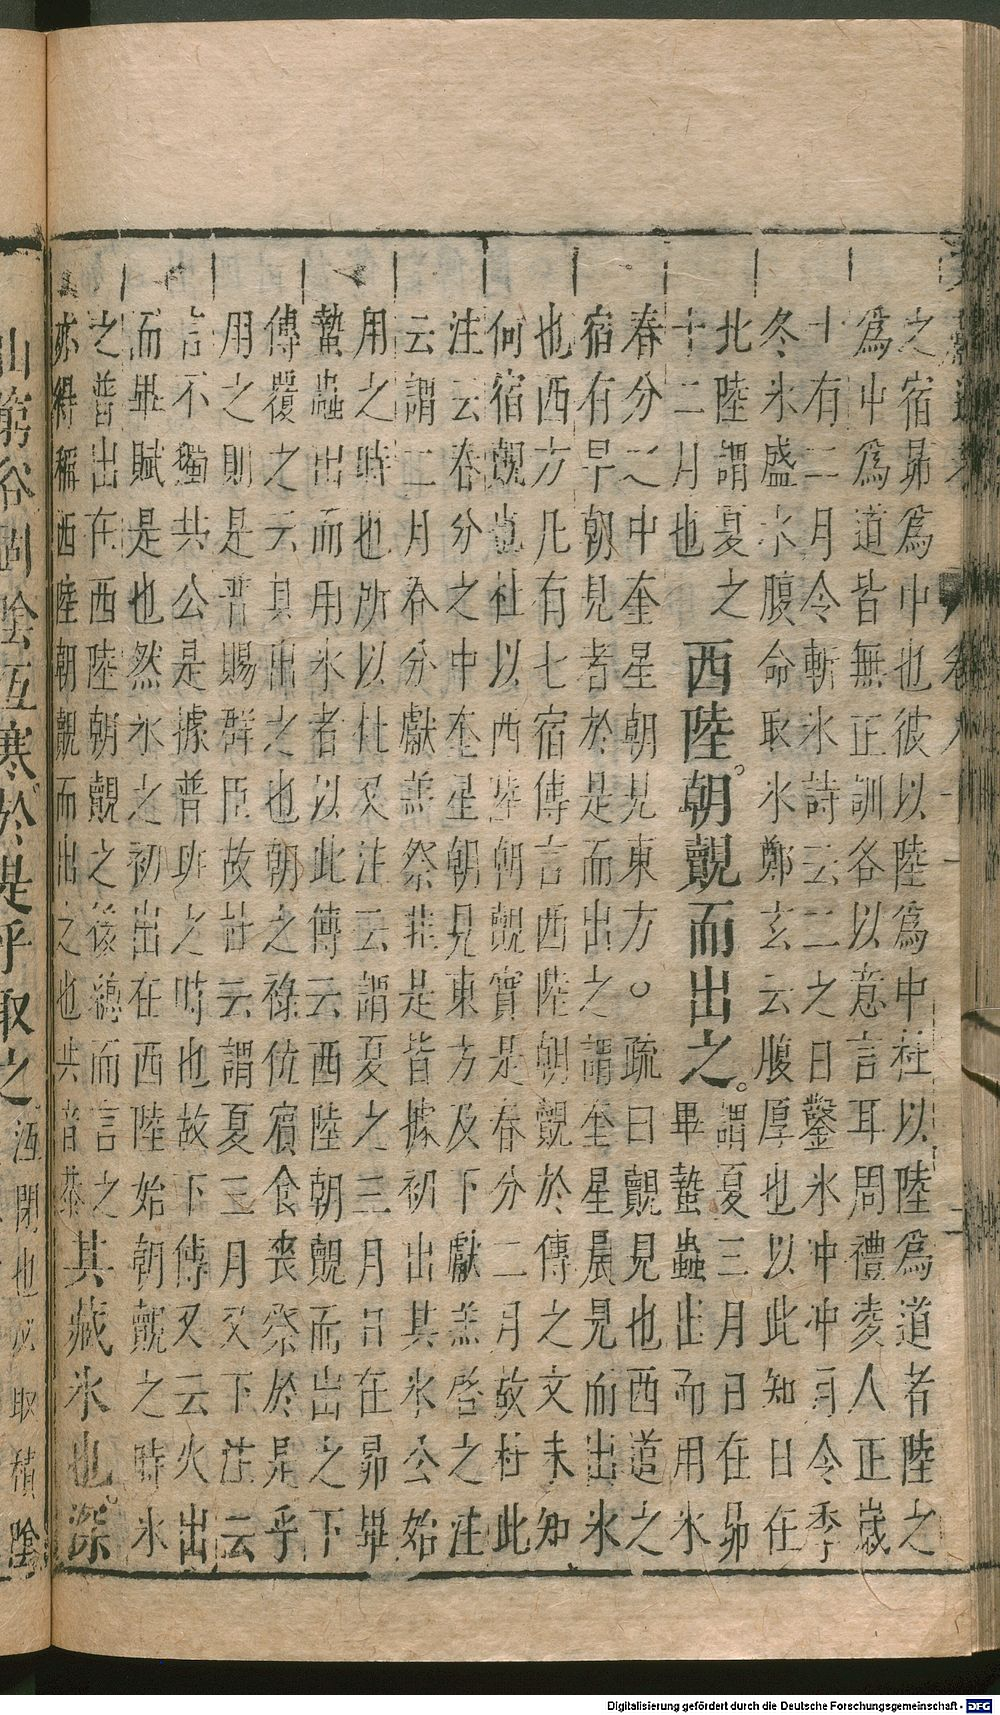 之宿昴爲中也彼以陸爲中杜以陸爲道者陸之
爲中爲道皆無正訓各以意言耳周禮凌人正歲
十有二月令斬氷詩云二之日鑿氷冲冲月令季
冬氷盛水腹命取氷鄭玄云腹厚也以此知日在
北陸謂夏之
十二月也
西陸朝覿而出之
謂夏三月日在昴
畢蟄蟲出而用氷
春分之中奎星朝見東方○疏曰覿見也西道之
宿有早朝見者於是而出之謂奎星晨見而出氷
也西方凡有七宿傳言西陸朝覿於傳之文未知
何宿覿也杜以西陸朝覿實是春分二月故杜此
注云春分之中奎星朝見東方及下獻羔啓之注
云謂二月春分獻羔祭韭是皆據初出其氷公始
用之時也所以杜又注云謂夏之三月日在昴畢
蟄蟲出而用氷者以此傳云西陸朝覿而出之下
傳覆之云其出之也朝之祿位賓食喪祭於是乎
用之則是普賜群臣故杜云謂夏三月又下注云
言不獨共公是據普班之時也故下傳又云火出
而畢賦是也然氷之初出在西陸始朝覿之時氷
之普出在西陸朝覿之後緫而言之
亦得稱西陸朝覿而出之也
其藏氷也深
山窮谷固陰沍寒於是乎取之
沍閉也
取積陰
Digitalisierung gefördert durch die Deutsche Forschungsgemeinschaft - DFG